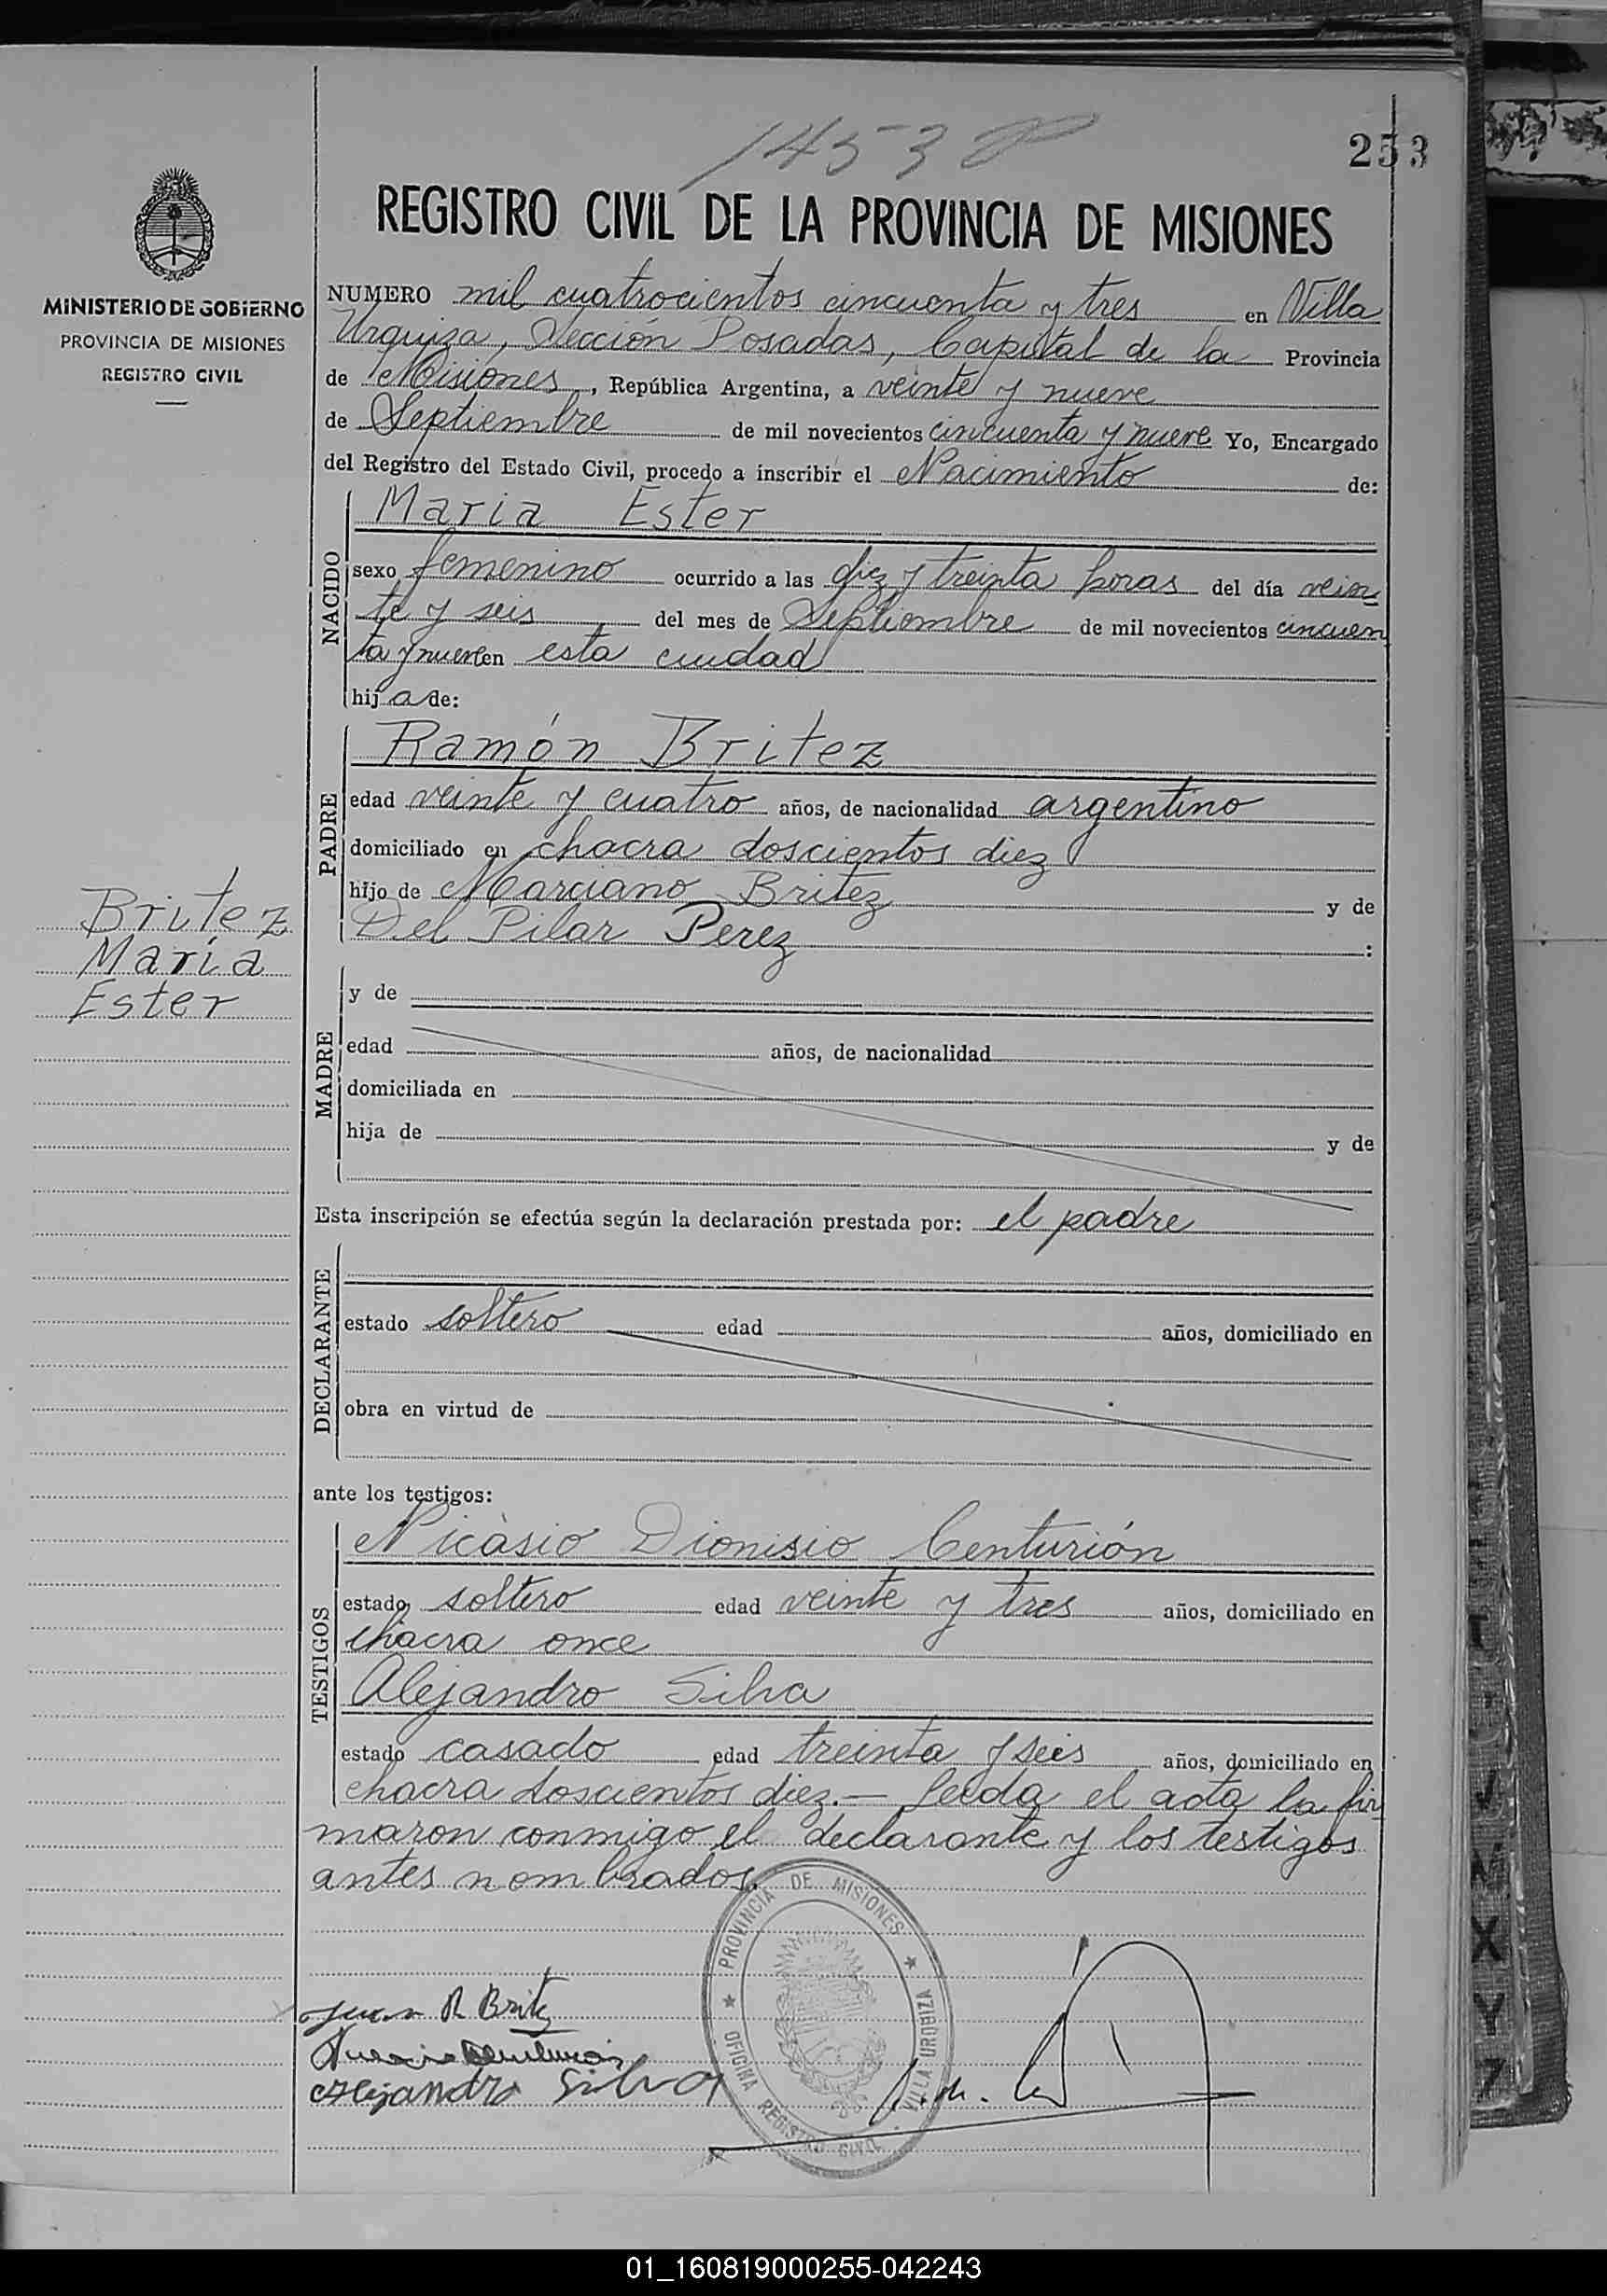 1453
253
REGISTRO CIVIL DE LA PROVINCIA DE MISIONES
MINISTERIO DE GOBIERNO
PROVINCIA DE MISIONES
REGISTRO CIVIL
NUMERO mil cuatrocientos cincuenta y tres en Villa
Urquiza, Sección Posadas, Capital de la Provincia
de Misiones, República Argentina, a veinte y nueve
de Septiembre de mil novecientos cincuenta y nueve Yo, Encargado
del Registro del Estado Civil, procedo a inscribir el Nacimiento de:
NACIDO
Maria Ester
sexo femenino ocurrido a las diez y treinta horas del día vein
te y seis del mes de Septiembre de mil novecientos cincuen
ta y nueve en esta ciudad
hija de:
PADRE
Ramón Britez
edad veinte y cuatro años, de nacionalidad argentino
domiciliado en chacra doscientos diez
hijo de Marciano Britez y de
Del Pilar Perez :
Britez
María
Ester
MADRE
y de
edad años, de nacionalidad
domiciliada en
hija de y de
Esta inscripción se efectúa según la declaración prestada por: el padre
DECLARANTE
estado soltero edad años, domiciliado en
obra en virtud de
ante los testigos:
TESTIGOS
Nicàsio Dionisio Centurión
estado soltero edad veinte y tres años, domiciliado en
chacra once
Alejandro Silva
estado casado edad treinta y seis años, domiciliado en
chacra doscientos diez.— Leida el acta la fir
maron conmigo el declarante y los testigos
antes nombrados.
PROVINCIA DE MISIONES
OFICINA REGISTRO CIVIL
VILLA URQUIZA
Juan R Britez
Alejandro Silva
01_160819000255-042243